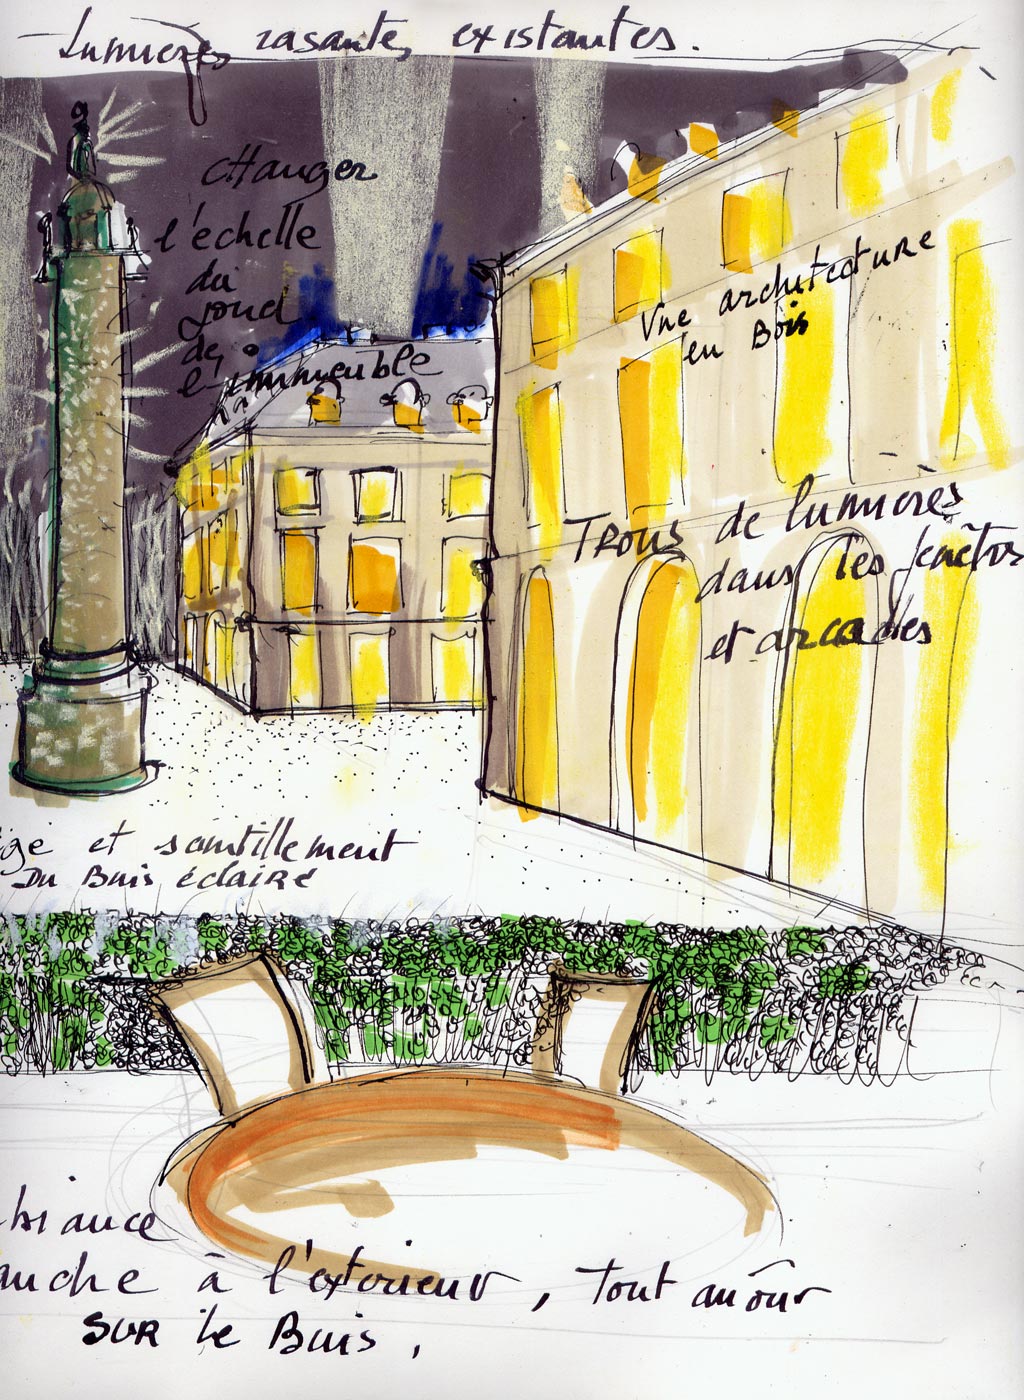 Lumieres rasantes existantes.
changer
l'échelle
du
fond
de
l'immeuble
Vue architecture
en Bois
Trous de lumières
dans les fenêtres
et arcades
ige et scintillement
Du Buis éclairé
biance
anche à l'exterieur, tout autour
SUR le Buis,